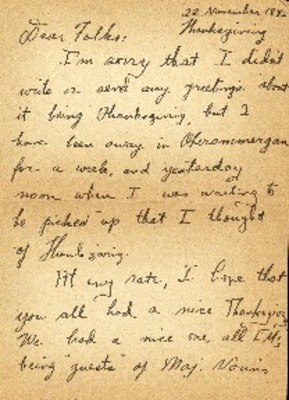 22 November 194
Thanksgiving
Dear Folks:
I'm sorry that I didn't
write or send any greetings about
it being Thanksgiving, but I
have been away in Oberammergau
for a week, and yesterday
noon when I was waiting to
be picked up that I thought
of Thanksgiving.
At any rate, I hope that
you all had a nice Thanksgiving.
We had a nice one, all EM's
being "guests" of Maj.